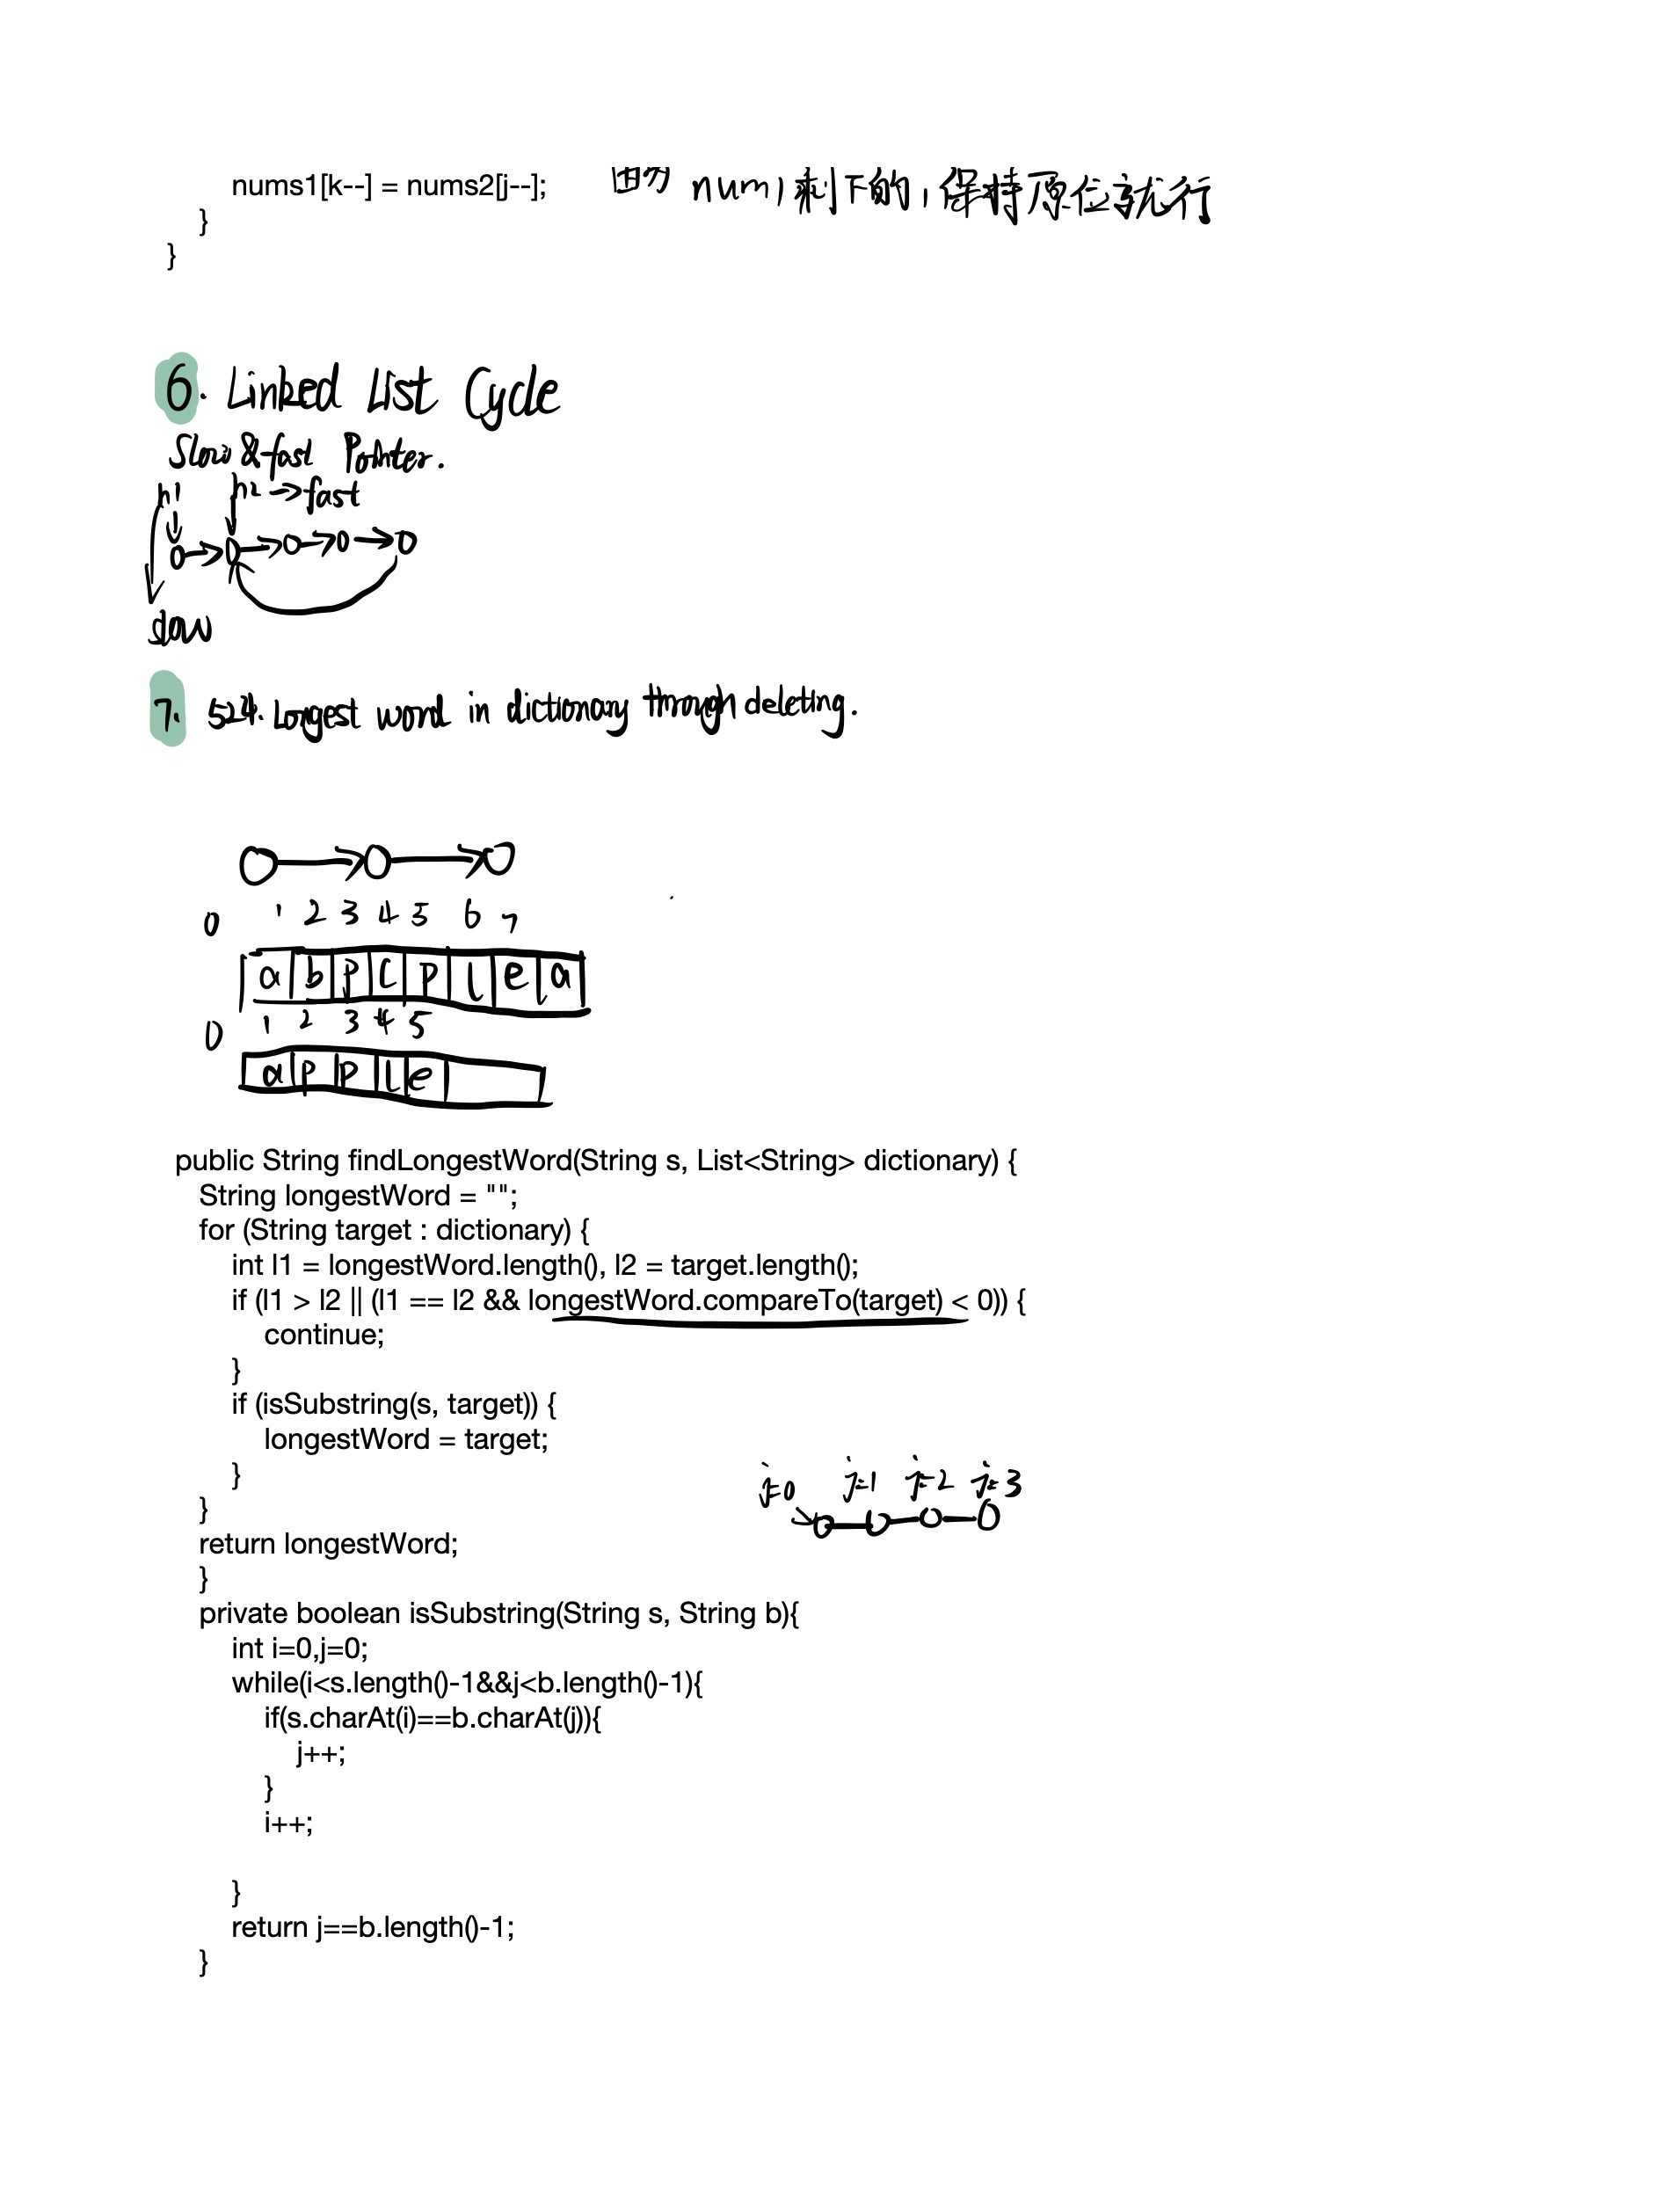 nums1[k--] = nums2[j--]; num1剩下的,保持原位就行
}
}
6. Linked List Cycle
Slow & fast Pointer.
h1 h2 → fast
slow
7. 524. Longest word in dictionary through deleting.
0 1 2 3 4 5 6 7
a b p c p l e a
0 1 2 3 4 5
a p p l e
public String findLongestWord(String s, List<String> dictionary) {
String longestWord = "";
for (String target : dictionary) {
int l1 = longestWord.length(), l2 = target.length();
if (l1 > l2 || (l1 == l2 && longestWord.compareTo(target) < 0)) {
continue;
}
if (isSubstring(s, target)) {
longestWord = target;
}
j=0 j=1 j=2 j=3
}
return longestWord;
}
private boolean isSubstring(String s, String b){
int i=0,j=0;
while(i<s.length()-1&&j<b.length()-1){
if(s.charAt(i)==b.charAt(j)){
j++;
}
i++;
}
return j==b.length()-1;
}